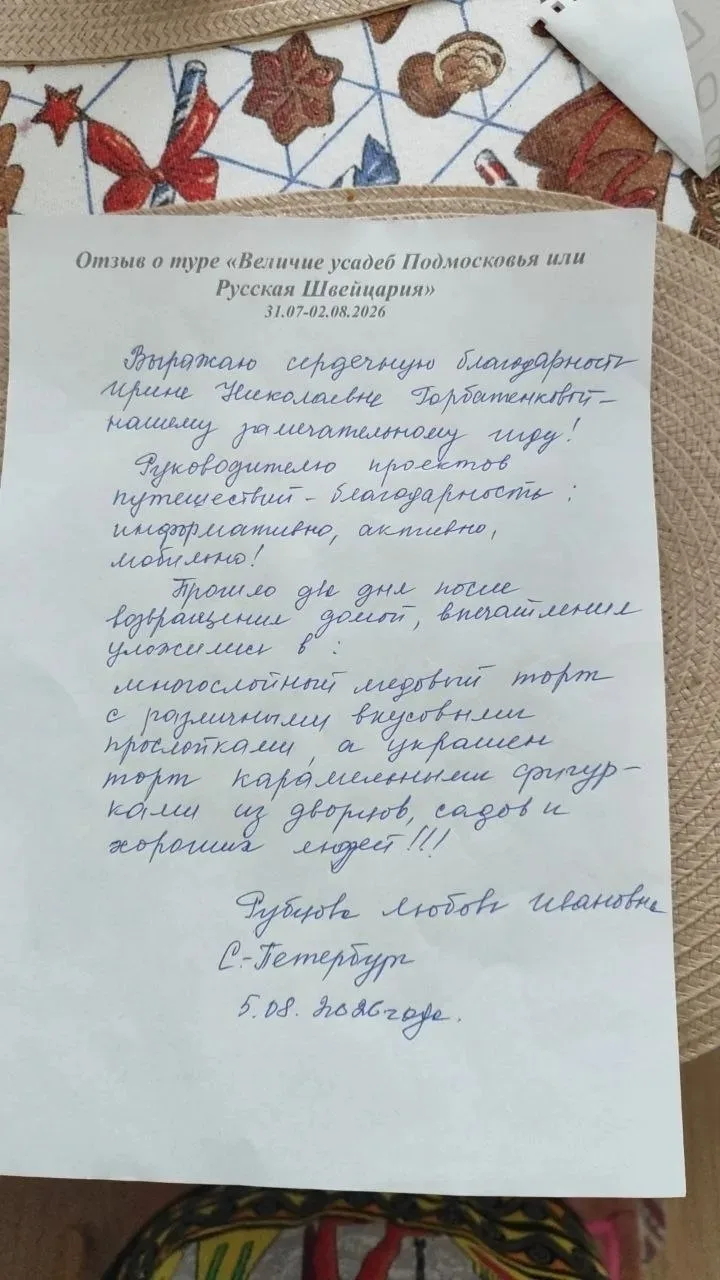 Отзыв о туре «Величие усадеб Подмосковья или
Русская Швейцария»
31.07-02.08.2026
Выражаю сердечную благодарность
Ирине Николаевне Горбатенковой –
нашему замечательному гиду!
Руководителю проектов
путешествий – благодарность :
информативно, активно,
мобильно!
Прошло два дня после
возвращения домой, впечатления
уложились в :
многослойный медовый торт
с различными вкусовыми
прослойками, а украшен
торт карамельными фигур-
ками из дворцов, садов и
хороших людей!!!
Рубцова Любовь Ивановна
С.-Петербург
5.08. 2026 года.